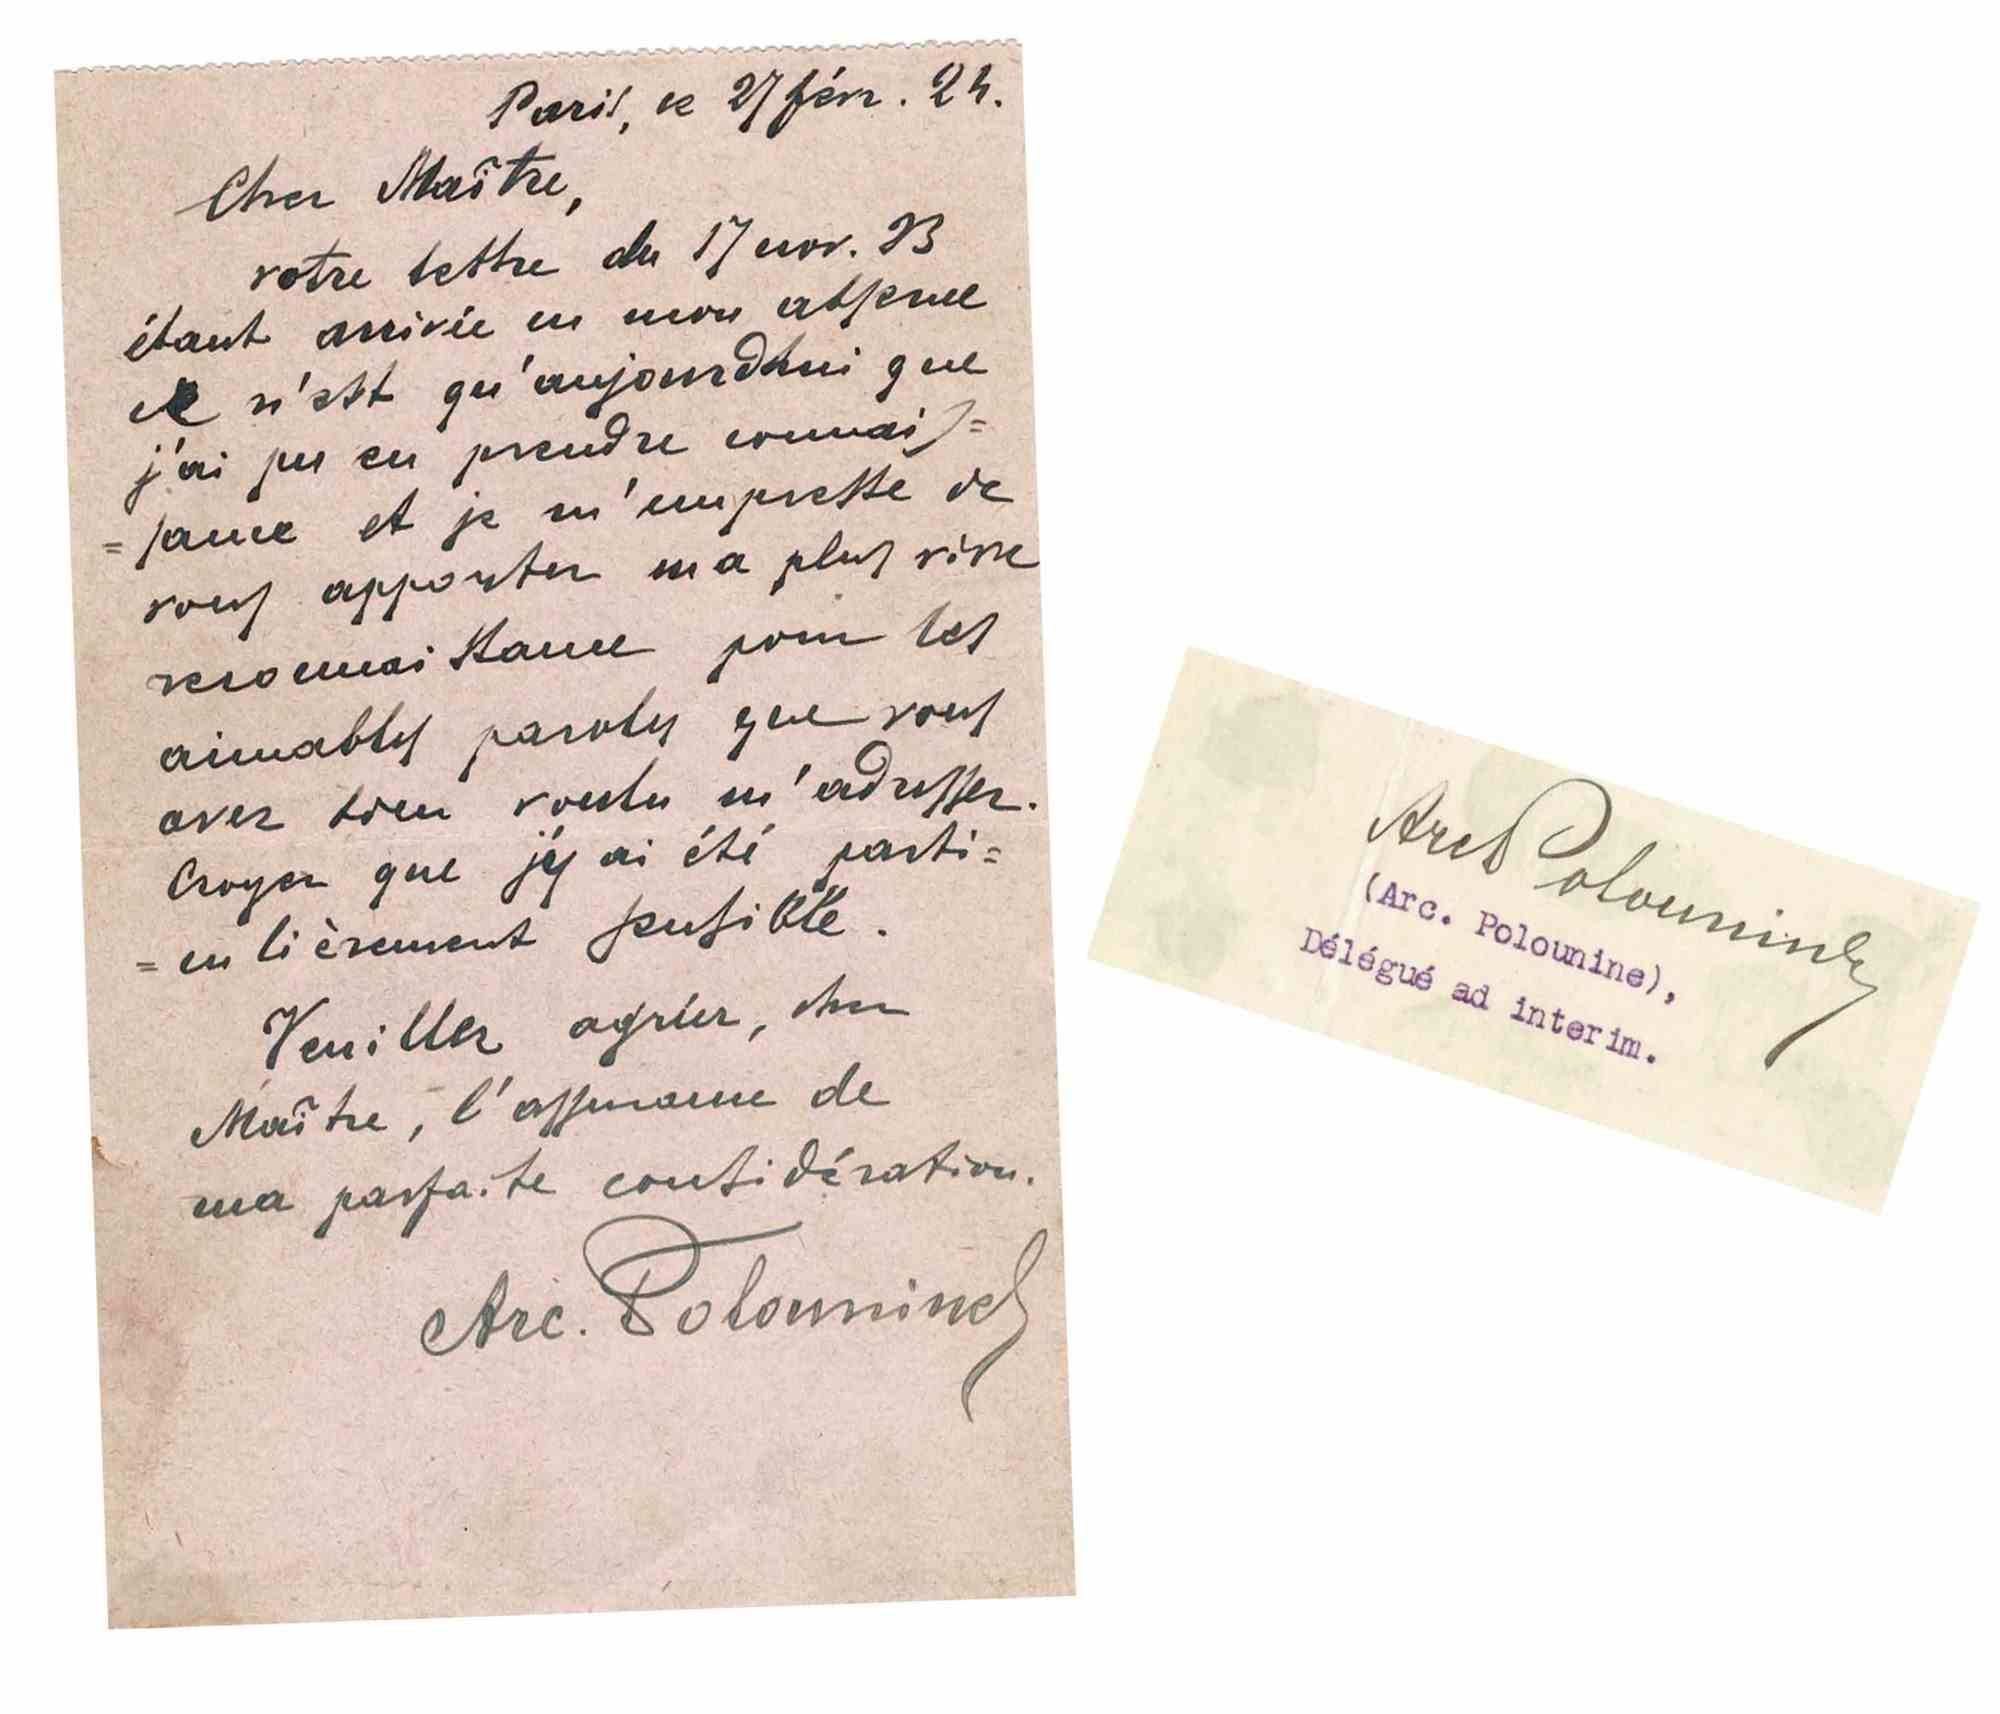 Paris, le 27 févr. 24.
Cher Maître,
votre lettre du 17 nov. 23
étant arrivée en mon absence
ce n'est qu'aujourdhui que
j'ai pu en prendre connais=
=sance et je m'empresse de
vous apporter ma plus vive
reconnaissance pour les
aimables paroles que vous
avez bien voulu m'adresser.
Croyez que j'y ai été parti=
=culièrement sensible.
Veuillez agréer, cher
Maître, l'assurance de
ma parfaite considération.
Arc. Polounine
Arc. Polounine
(Arc. Polounine),
Délégué ad interim.